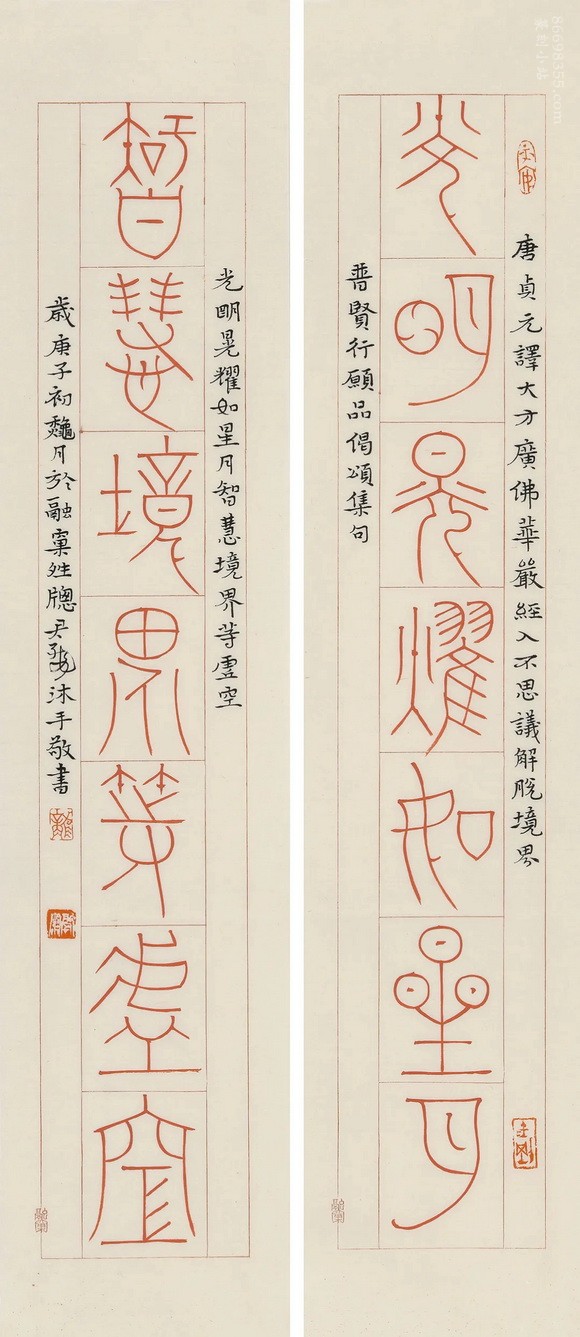 唐貞元譯大方廣佛華嚴經入不思議解脫境界
光明晃耀如星月
普賢行願品偈頌集句
光明晃耀如星月智慧境界等虛空
智慧境界等虛空
歲庚子初龝月於融牕尹沐手敬書
86698355.com